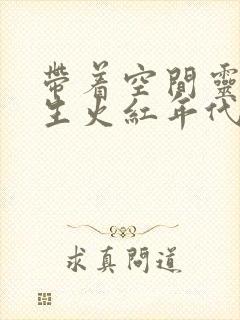 帶着空間靈
生火紅年代
求真問道